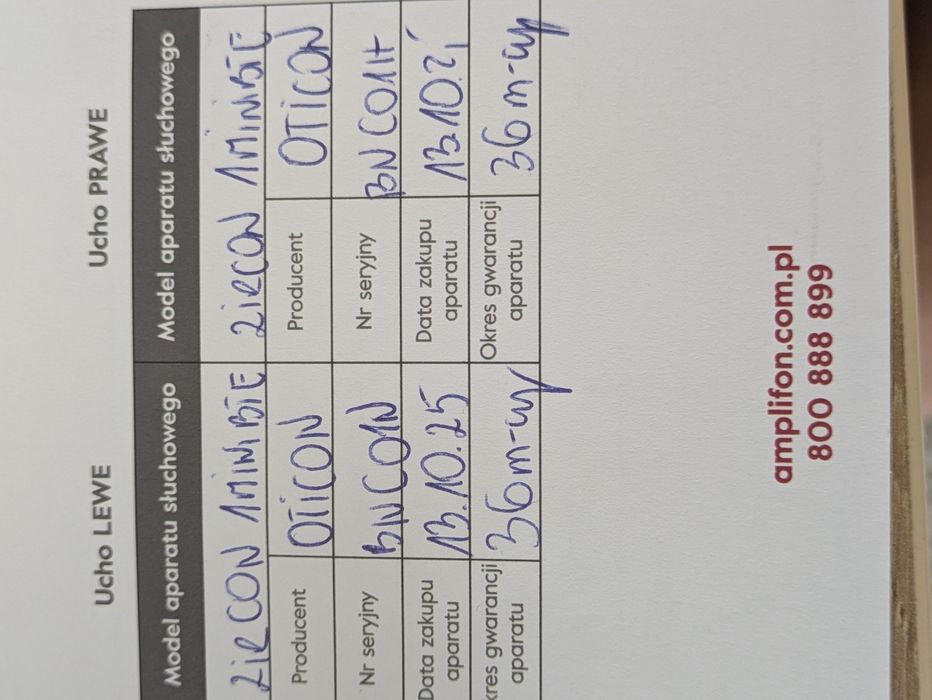 Ucho LEWE Ucho PRAWE
Model aparatu słuchowego Model aparatu słuchowego
ZIRCON 1MINIBTE ZIRCON 1MINIBTE
Producent OTICON Producent OTICON
Nr seryjny BNC01N Nr seryjny
Data zakupu aparatu 13.10.25 Data zakupu aparatu
kres gwarancji aparatu 36 m-cy Okres gwarancji aparatu 36 m-cy
amplifon.com.pl
800 888 899